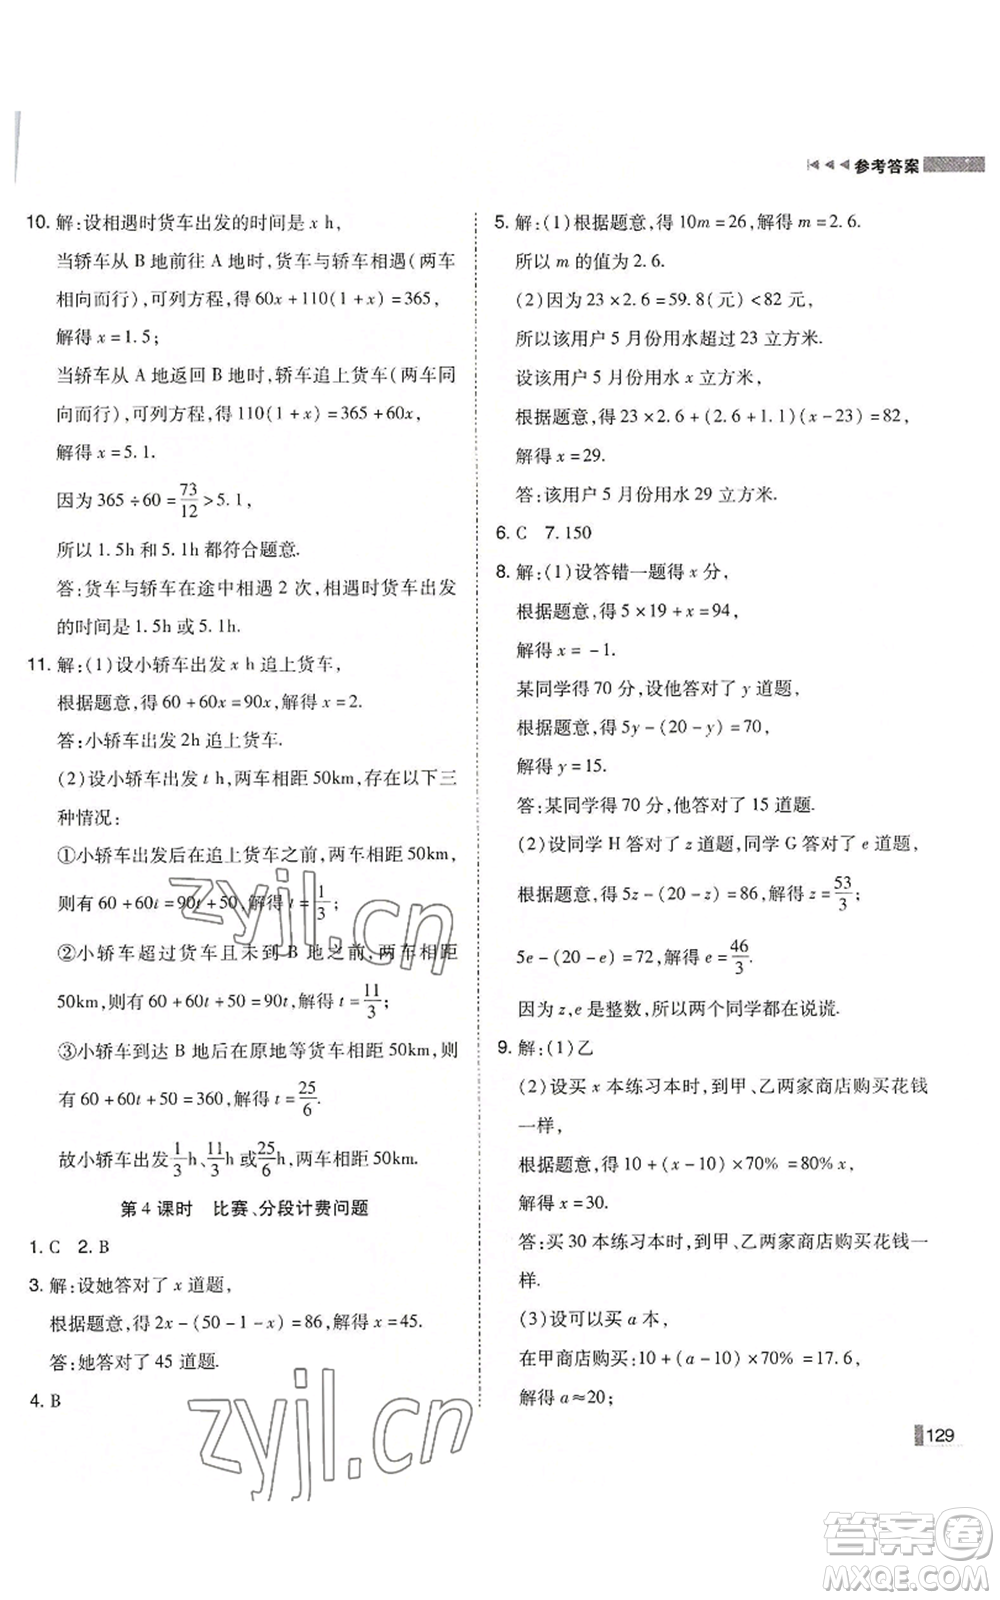 参考答案
10. 解:设相遇时货车出发的时间是 x h,
当轿车从 B 地前往 A 地时,货车与轿车相遇(两车
相向而行),可列方程,得 60x+110(1+x)=365,
解得 x=1.5;
当轿车从 A 地返回 B 地时,轿车追上货车(两车同
向而行),可列方程,得 110(1+x)=365+60x,
解得 x=5.1.
因为 365÷60=73/12>5.1,
所以 1.5h 和 5.1h 都符合题意.
答:货车与轿车在途中相遇 2 次,相遇时货车出发
的时间是 1.5h 或 5.1h.
11. 解:(1)设小轿车出发 x h 追上货车,
根据题意,得 60+60x=90x,解得 x=2.
答:小轿车出发 2h 追上货车.
(2)设小轿车出发 t h,两车相距 50km,存在以下三
种情况:
①小轿车出发后在追上货车之前,两车相距 50km,
则有 60+60t=90t+50,解得 t=1/3;
②小轿车超过货车且未到 B 地之前,两车相距
50km,则有 60+60t+50=90t,解得 t=11/3;
③小轿车到达 B 地后在原地等货车相距 50km,则
有 60+60t+50=360,解得 t=25/6.
故小轿车出发 1/3h、11/3h 或 25/6h,两车相距 50km.
第 4 课时 比赛、分段计费问题
1. C 2. B
3. 解:设她答对了 x 道题,
根据题意,得 2x-(50-1-x)=86,解得 x=45.
答:她答对了 45 道题.
4. B
5. 解:(1)根据题意,得 10m=26,解得 m=2.6.
所以 m 的值为 2.6.
(2)因为 23×2.6=59.8(元)<82 元,
所以该用户 5 月份用水超过 23 立方米.
设该用户 5 月份用水 x 立方米,
根据题意,得 23×2.6+(2.6+1.1)(x-23)=82,
解得 x=29.
答:该用户 5 月份用水 29 立方米.
6. C 7. 150
8. 解:(1)设答错一题得 x 分,
根据题意,得 5×19+x=94,
解得 x=-1.
某同学得 70 分,设他答对了 y 道题,
根据题意,得 5y-(20-y)=70,
解得 y=15.
答:某同学得 70 分,他答对了 15 道题.
(2)设同学 H 答对了 z 道题,同学 G 答对了 e 道题,
根据题意,得 5z-(20-z)=86,解得 z=53/3;
5e-(20-e)=72,解得 e=46/3.
因为 z,e 是整数,所以两个同学都在说谎.
9. 解:(1)乙
(2)设买 x 本练习本时,到甲、乙两家商店购买花钱
一样,
根据题意,得 10+(x-10)×70%=80%x,
解得 x=30.
答:买 30 本练习本时,到甲、乙两家商店购买花钱一
样.
(3)设可以买 a 本,
在甲商店购买:10+(a-10)×70%=17.6,
解得 a≈20;
129
zyjl.cn
zyjl.cn
答案卷
MXQE.COM